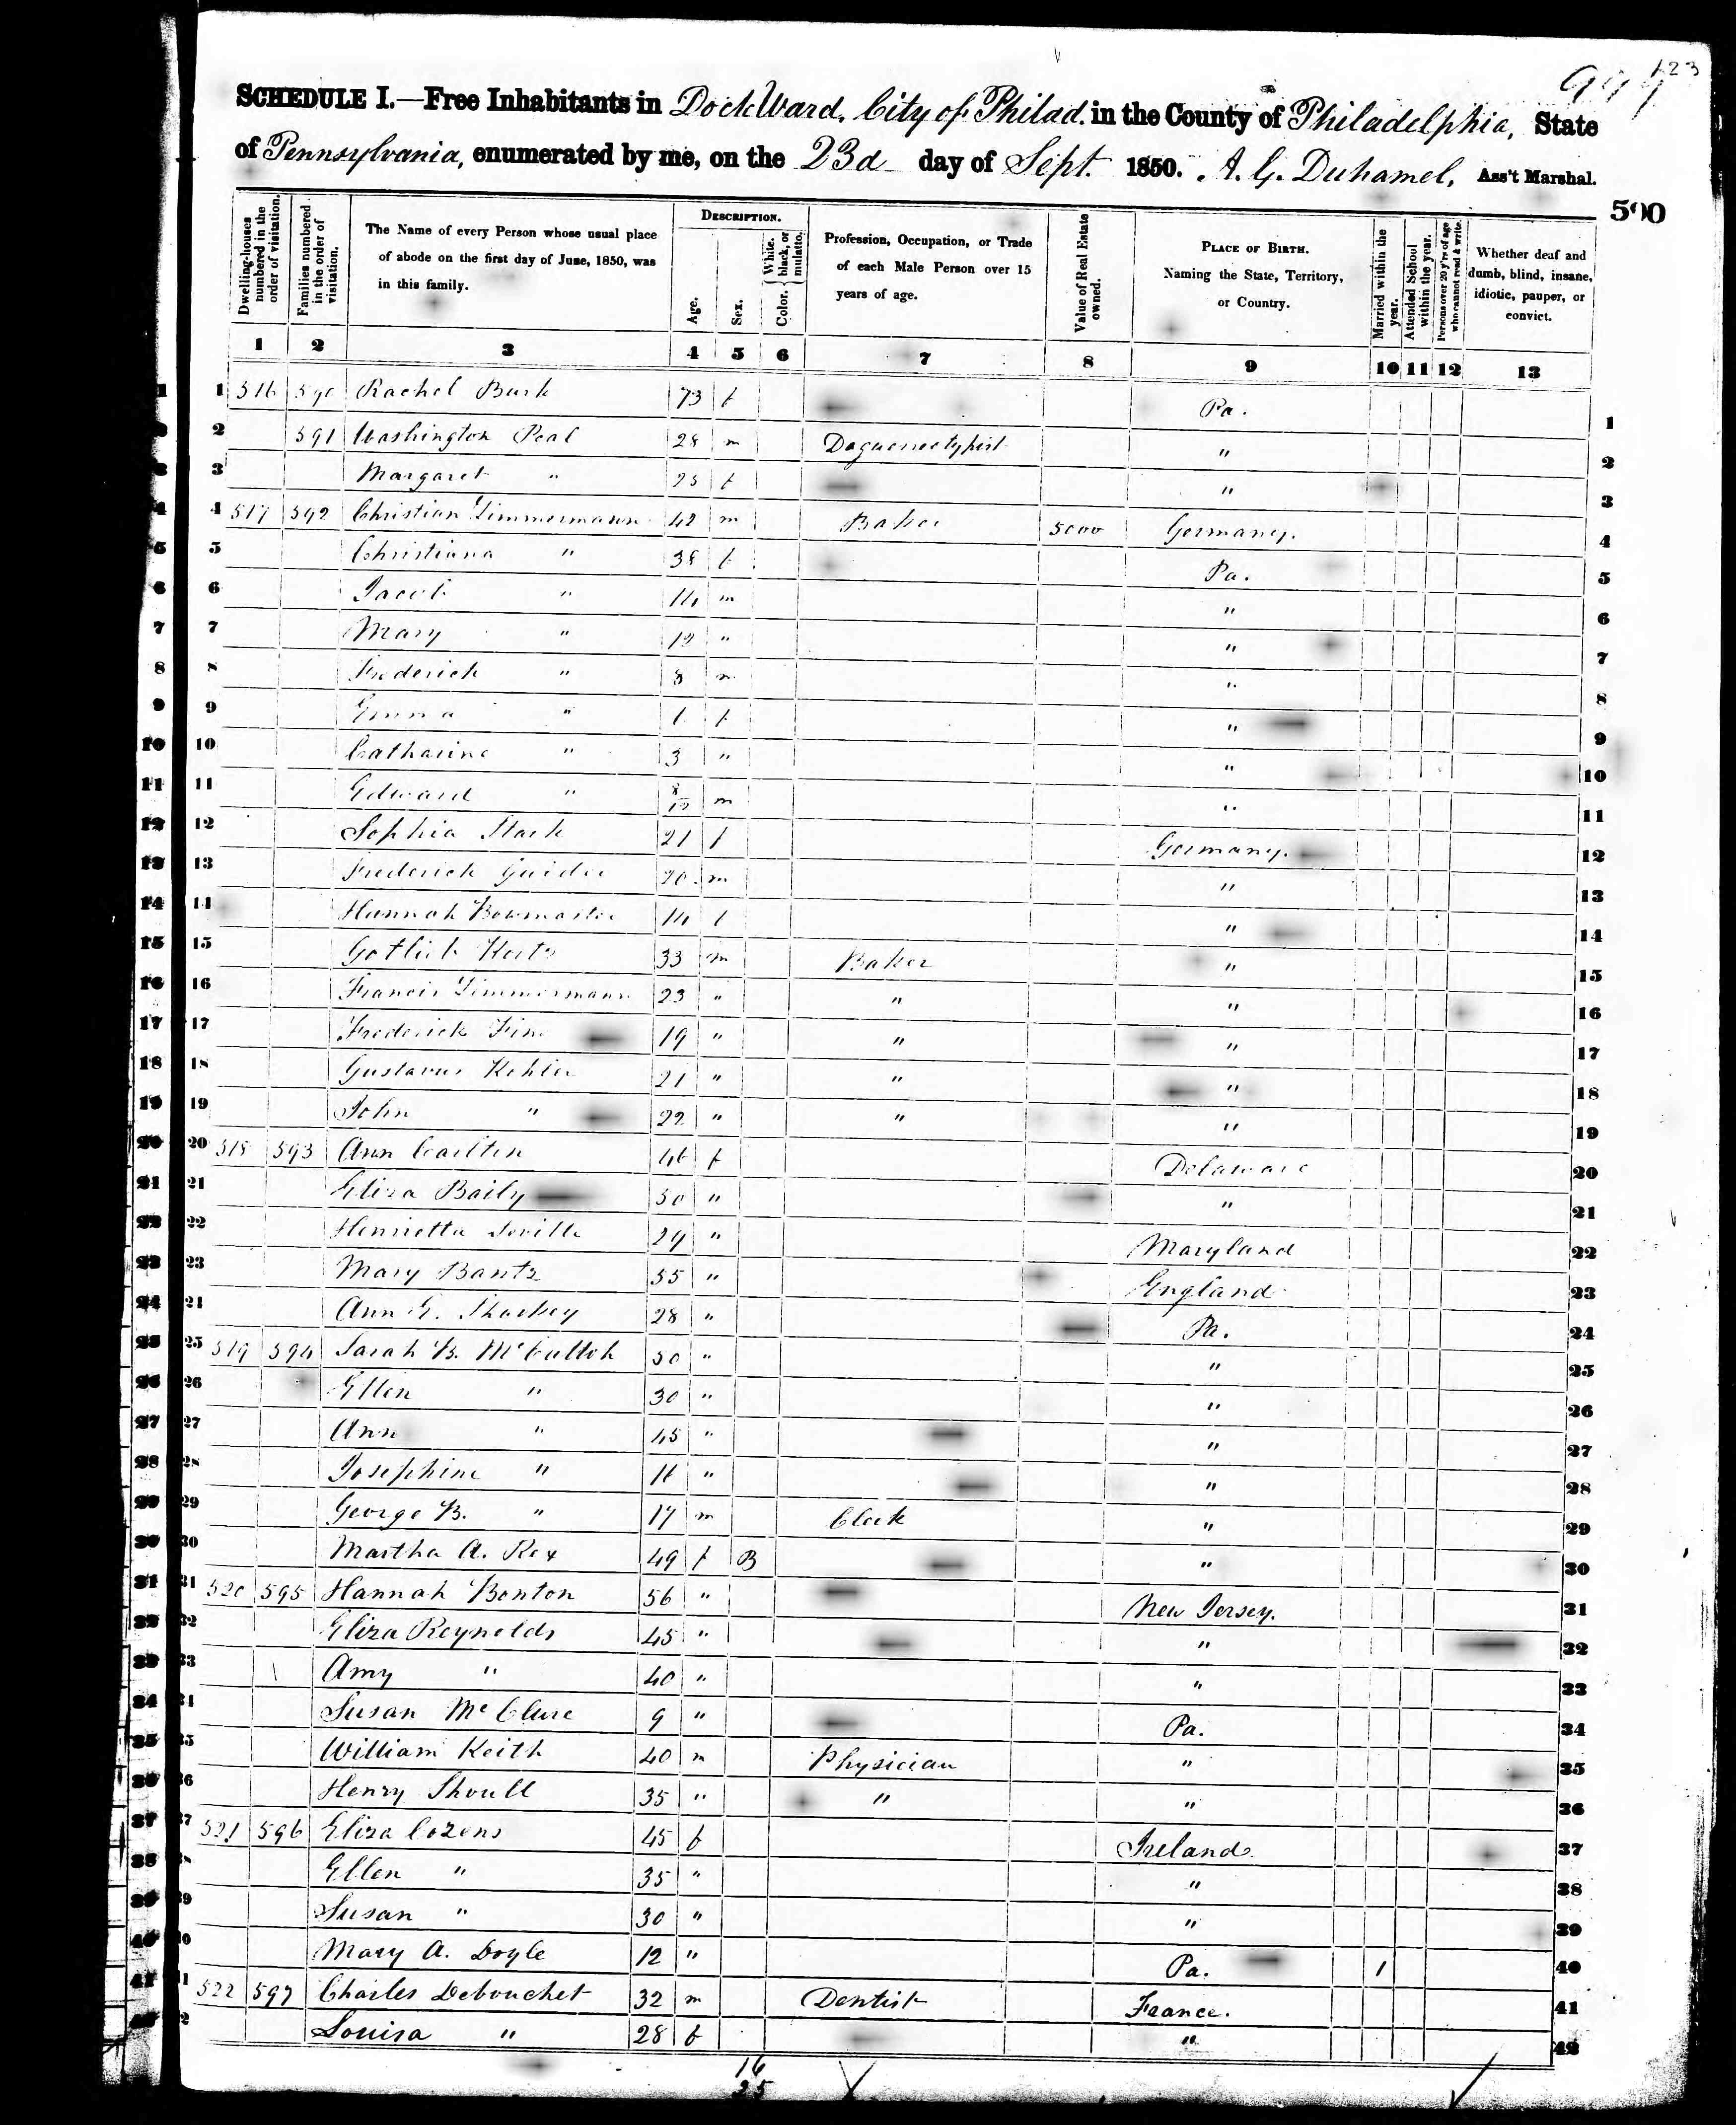 123
SCHEDULE I.—Free Inhabitants in Dock Ward, City of Philad. in the County of Philadelphia, State
of Pennsylvania, enumerated by me, on the 23d day of Sept. 1850. A. G. Duhamel, Ass't Marshal.
500
Dwelling-houses numbered in the order of visitation. Families numbered in the order of visitation. The Name of every Person whose usual place of abode on the first day of June, 1850, was in this family. DESCRIPTION. Age. Sex. Color. White, black, or mulatto. Profession, Occupation, or Trade of each Male Person over 15 years of age. Value of Real Estate owned. PLACE OF BIRTH. Naming the State, Territory, or Country. Married within the year. Attended School within the year. Persons over 20 y'rs of age who cannot read & write. Whether deaf and dumb, blind, insane, idiotic, pauper, or convict.
1 2 3 4 5 6 7 8 9 10 11 12 13
1 516 590 Rachel Burk 73 f Pa. 1
2 591 Washington Peal 28 m Daguerreotypist " 2
3 Margaret " 25 f " 3
4 517 592 Christian Zimmermann 42 m Baker 5000 Germany. 4
5 Christiana " 38 f Pa. 5
6 Jacob " 14 m " 6
7 Mary " 12 " " 7
8 Frederick " 8 m " 8
9 Emma " f " 9
10 Catharine " 3 " " 10
11 Edward " 8/12 m " 11
12 Sophia Stack 21 f Germany. 12
13 Frederick 20 m " 13
14 Hannah Bowmaster 14 f " 14
15 Gotlieb 33 m Baker " 15
16 Francis Zimmermann 23 " " " 16
17 Frederick 19 " " " 17
18 Gustavus Kohler 21 " " " 18
19 John " 22 " " " 19
20 518 593 Ann Carlton 46 f Delaware 20
21 Eliza Baily 50 " " 21
22 Henrietta Seville 29 " Maryland 22
23 Mary Bantz 55 " England 23
24 Ann E. Sharkey 28 " Pa. 24
25 519 594 Sarah B. McCulloh 50 " " 25
26 Ellen " 30 " " 26
27 Ann " 45 " " 27
28 Josephine " 16 " " 28
29 George B. " 17 m Clerk " 29
30 Martha A. Rex 49 f B " 30
31 520 595 Hannah Bonton 56 " New Jersey. 31
32 Eliza Reynolds 45 " " 32
33 Amy " 40 " " 33
34 Susan McClure 9 " Pa. 34
35 William Keith 40 m Physician " 35
36 Henry Shoull 35 " " " 36
37 521 596 Eliza Cozens 45 f Ireland 37
38 Ellen " 35 " " 38
39 Susan " 30 " " 39
40 Mary A. Doyle 12 " Pa. 1 40
41 522 597 Charles Debouchet 32 m Dentist France. 41
42 Louisa " 28 f " 42
16
25